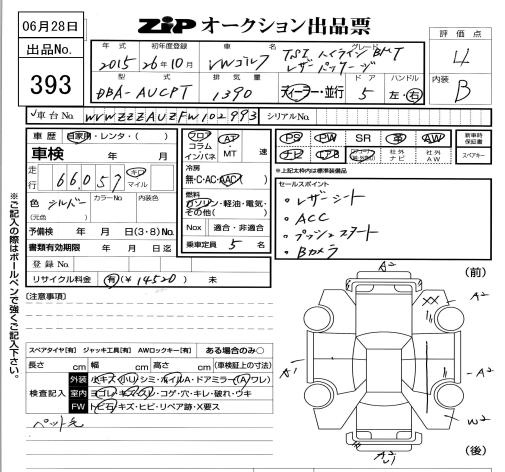 06月28日
ZIP オークション出品票
出品No.
393
評価点
4
内装
B
年式
初年度登録
車名
グレード
2015
26年10月
VWゴルフ
TSI ハイライン BMT
レザーパッケージ
型式
排気量
ドア
ハンドル
DBA-AUCPT
1390
ディーラー・並行
5
左・右
車台No.
WVWZZZAUZFW102993
シリアルNo.
車歴
自家用・レンタ・( )
車検
年 月
走行
66,057
キロ
マイル
色
シルバー
(元色)
カラーNo.
内装色
予備検
年 月 日(3・8)No.
書類有効期限
年 月 日迄
登録No.
リサイクル料金
有(¥ 14520 ) 未
フロア
コラム
インパネ
AT
・
MT
速
冷房
無・C・AC・AAC
燃料
ガソリン・軽油・電気・
その他( )
Nox
適合・非適合
乗車定員
5
名
PS
PW
SR
革
AW
ナビ
エアB
社外
ナビ
社外
AW
新車時
保証書
スペアキー
※上記太枠内は標準装備品
セールスポイント
・レザーシート
・ACC
・プッシュスタート
・Bカメラ
【注意事項】
スペアタイヤ[有] ジャッキ工具[有] AWロックキー[有]
ある場合のみ○
長さ cm
幅 cm
高さ cm
(車検証上の寸法)
検査記入
外装
小キズ・小リ・シミ・ホイルA・ドアミラー(A)ワレ)
室内
ヨゴレ・キズ・スレ・コゲ・穴・キレ・破れ・ウキ
FW
トビ石・キズ・ヒビ・リペア跡・X要ス
※ご記入の際はボールペンで強くご記入下さい。
(前)
A2
XX
A2
A1
A2
W2
A2
(後)